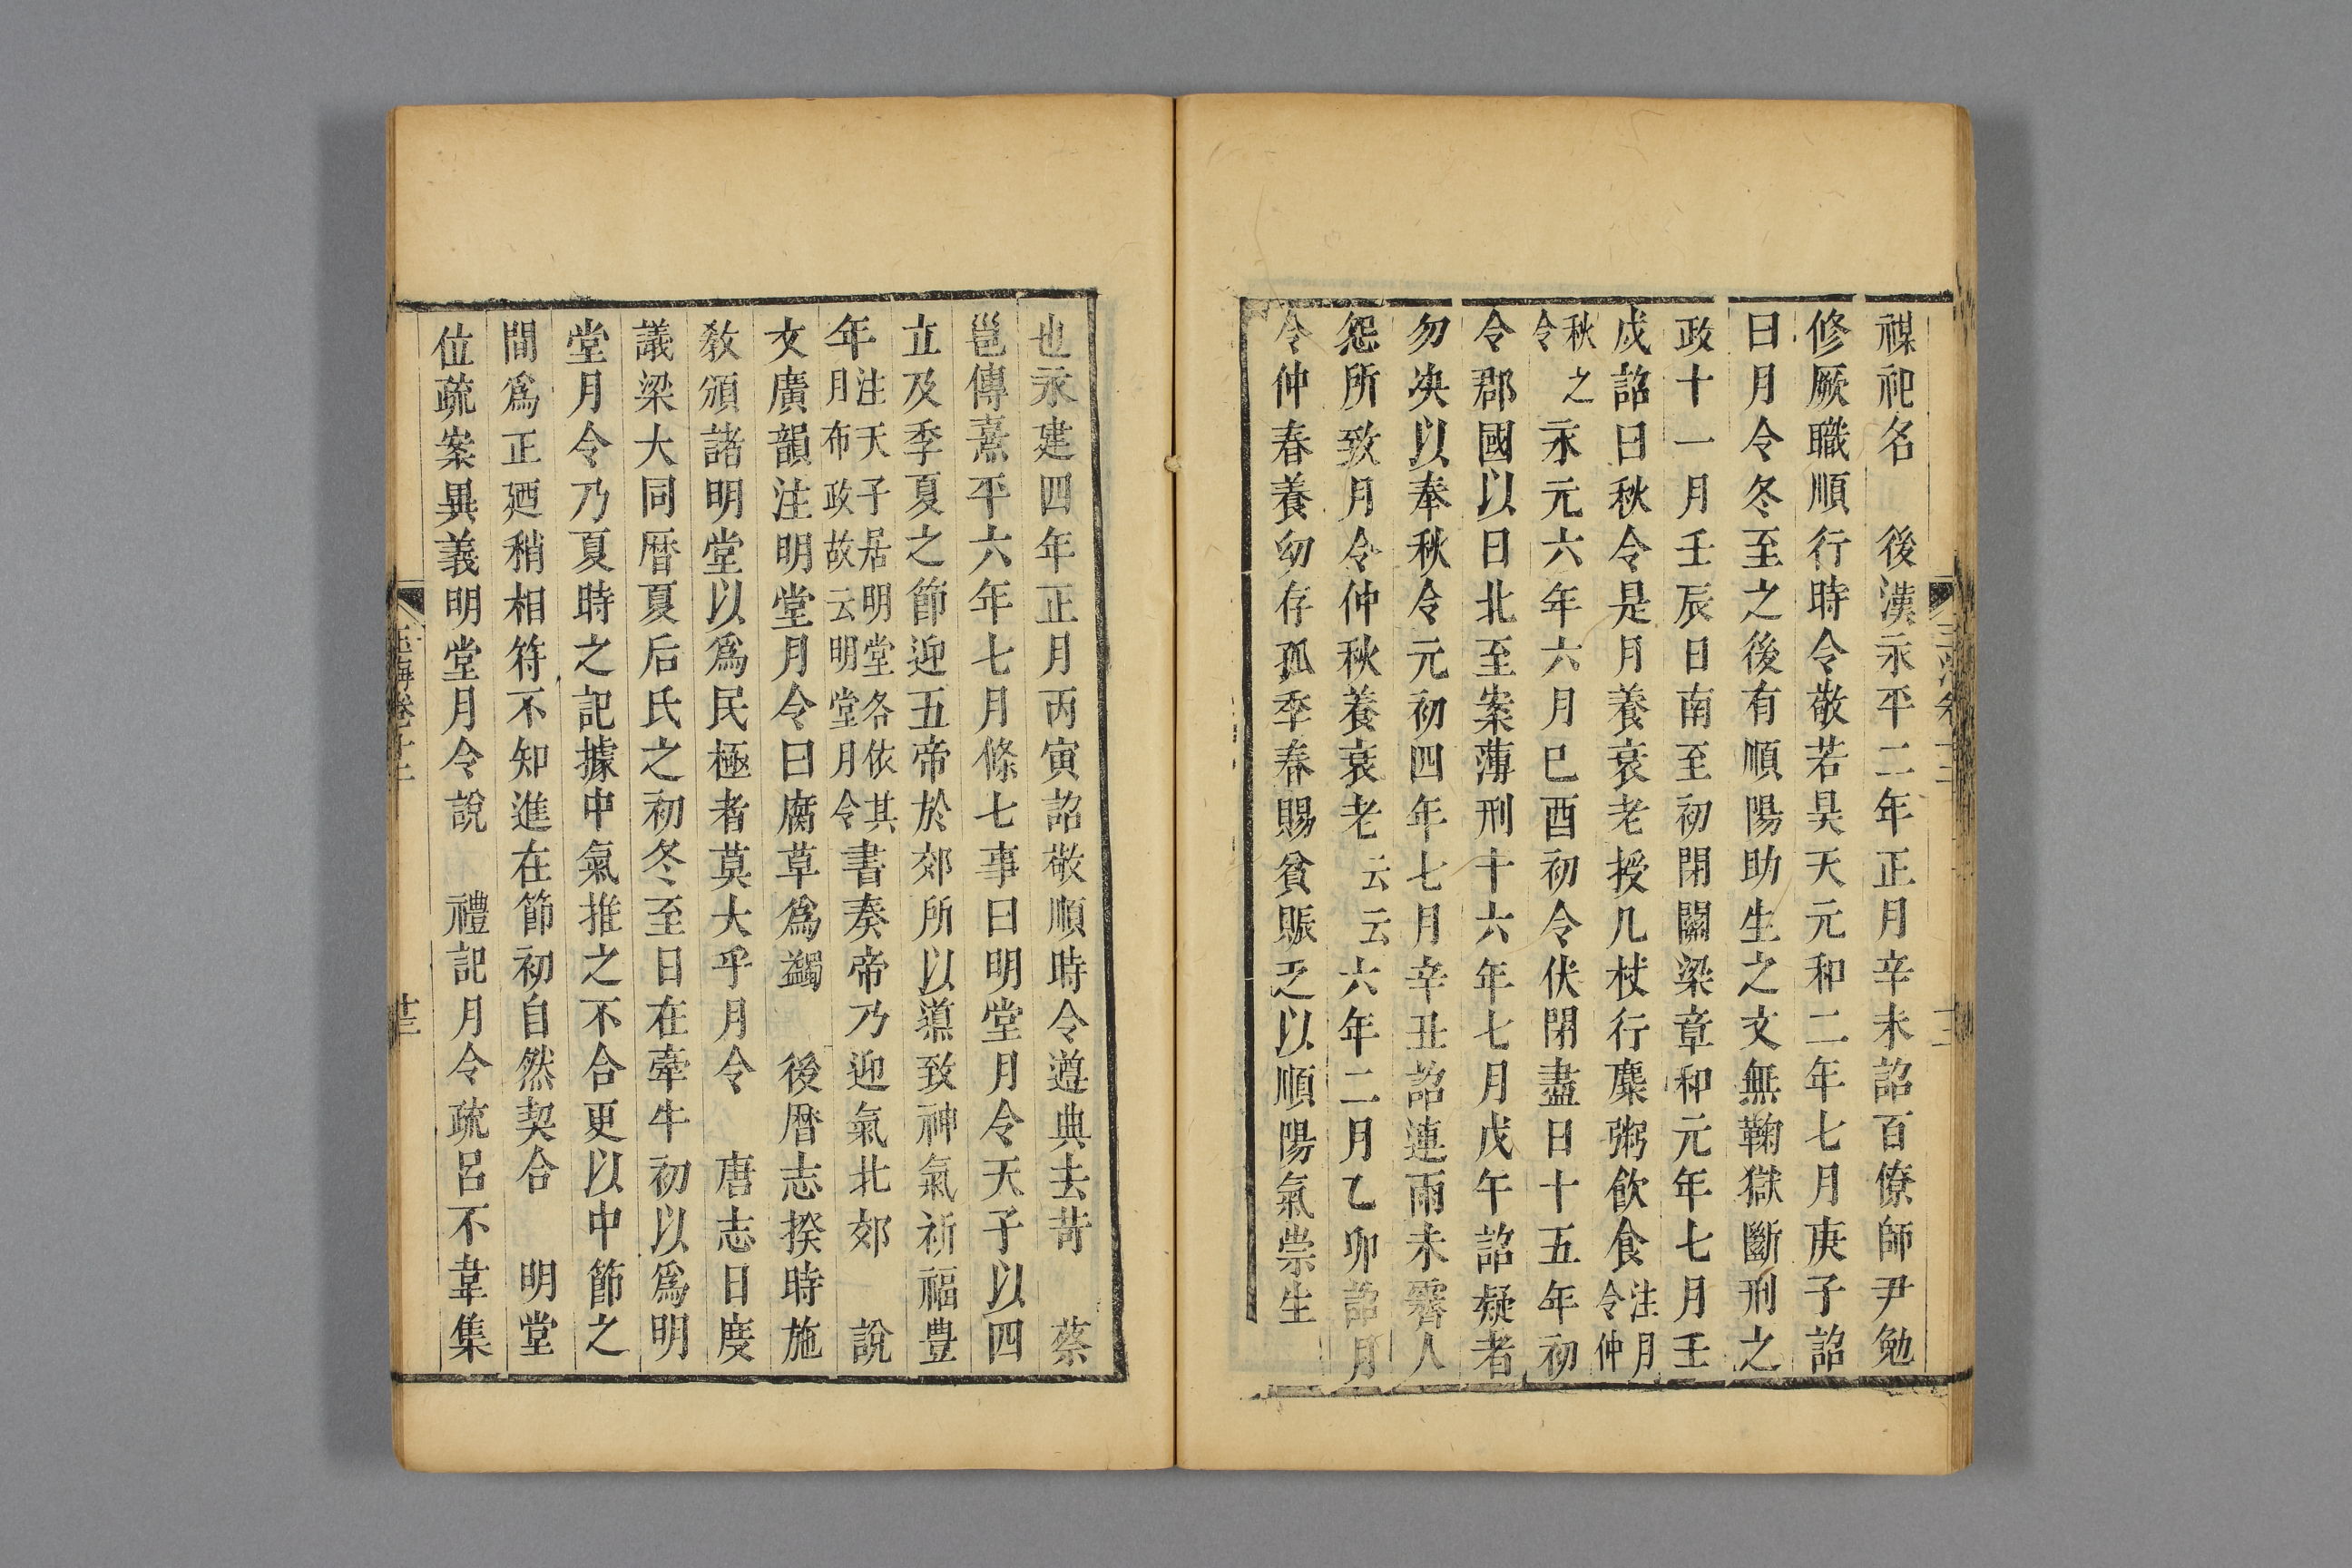 禖祀名　後漢永平二年正月辛未詔百僚師尹勉
修厥職順行時令敬若昊天元和二年七月庚子詔
曰月令冬至之後有順陽助生之文無鞠獄斷刑之
政十一月壬辰日南至初閉關梁章和元年七月壬
戌詔曰秋令是月養衰老授几杖行麋粥飲食注月令仲
秋之令永元六年六月己酉初令伏閉盡日十五年初
令郡國以日北至案薄刑十六年七月戊午詔疑者
勿决以奉秋令元初四年七月辛丑詔連雨未霽人
怨所致月令仲秋養衰老云云六年二月乙卯詔月
令仲春養幼存孤季春賜貧賑乏以順陽氣崇生
也永建四年正月丙寅詔敬順時令遵典去苛　蔡
邕傳熹平六年七月條七事曰明堂月令天子以四
立及季夏之節迎五帝於郊所以導致神氣祈福豊
年注天子居明堂各依其月布政故云明堂月令書奏帝乃迎氣北郊　說
文廣韻注明堂月令曰腐草爲蠲　後暦志揆時施
敎頒諸明堂以爲民極者莫大乎月令　唐志日度
議梁大同暦夏后氏之初冬至日在牽牛初以爲明
堂月令乃夏時之記據中氣推之不合更以中節之
間爲正廼稍相符不知進在節初自然契合　明堂
位疏案異義明堂月令說　禮記月令疏呂不韋集
玉海卷十二
廿三